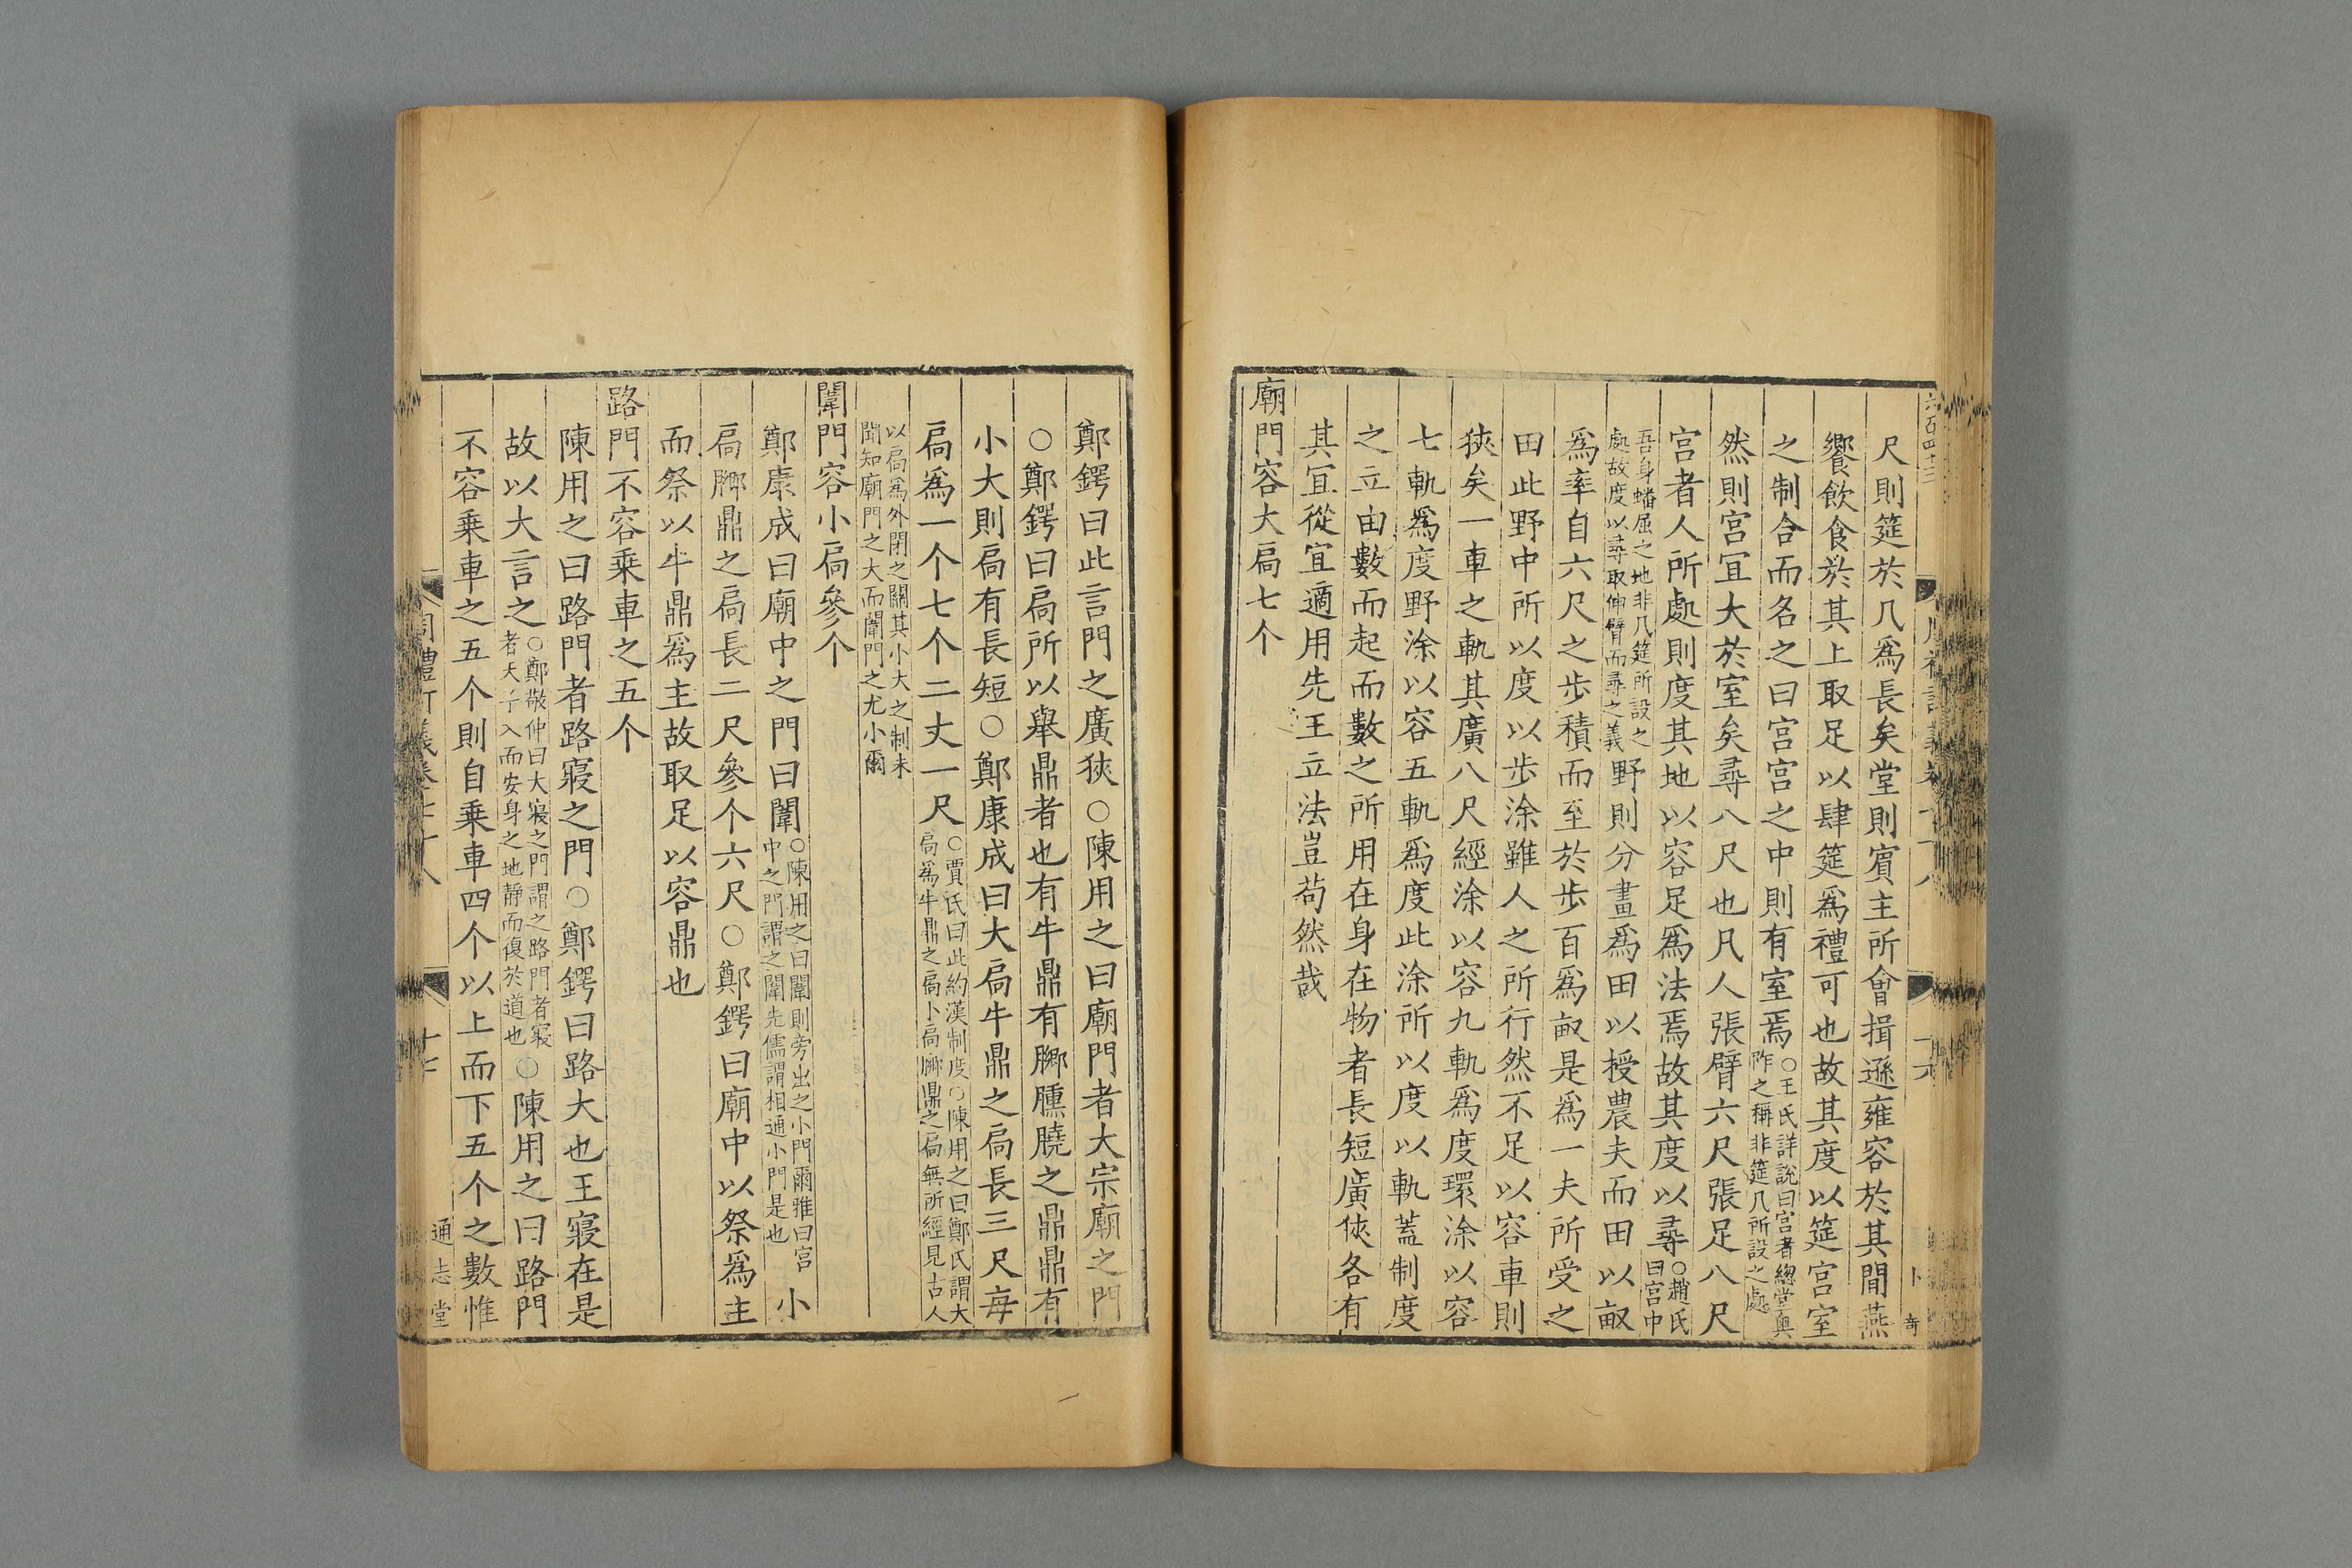 六百四十三
十六
卜 奇
尺則筵於几爲長矣堂則賔主所會揖遜雍容於其間燕
饗飲食於其上取足以肆筵爲禮可也故其度以筵宫室
之制合而名之曰宫宫之中則有室焉○王氏詳說曰宫者總堂奥
阼之稱非筵几所設之處
然則宫冝大於室矣尋八尺也凡人張臂六尺張足八尺
宫者人所處則度其地以容足爲法焉故其度以尋○趙氏
曰宫中
吾身蟠屈之地非几筵所設之
處故度以尋取伸臂而尋之義野則分畫爲田以授農夫而田以畝
爲率自六尺之歩積而至於歩百爲畝是爲一夫所受之
田此野中所以度以歩涂雖人之所行然不足以容車則
狹矣一車之軌其廣八尺經涂以容九軌爲度環涂以容
七軌爲度野涂以容五軌爲度此涂所以度以軌蓋制度
之立由數而起而數之所用在身在物者長短廣狹各有
其冝從冝適用先王立法豈苟然哉
廟門容大扃七个
鄭鍔曰此言門之廣狹○陳用之曰廟門者大宗廟之門
○鄭鍔曰扃所以舉鼎者也有牛鼎有膷臐膮之鼎鼎有
小大則扃有長短○鄭康成曰大扃牛鼎之扃長三尺每
扃爲一个七个二丈一尺○賈氏曰此約漢制度○陳用之曰鄭氏謂大
扃爲牛鼎之扃小扃膷鼎之扃無所經見古人
以扃爲外閉之關其小大之制未
聞知廟門之大而闈門之尤小爾
闈門容小扃參个
鄭康成曰廟中之門曰闈○陳用之曰闈則旁出之小門爾雅曰宫
中之門謂之闈先儒謂相通小門是也小
扃膷鼎之扃長二尺參个六尺○鄭鍔曰廟中以祭爲主
而祭以牛鼎爲主故取足以容鼎也
路門不容乗車之五个
陳用之曰路門者路寢之門○鄭鍔曰路大也王寢在是
故以大言之○鄭敬仲曰大寢之門謂之路門者寢
者天子入而安身之地靜而復於道也○陳用之曰路門
不容乗車之五个則自乗車四个以上而下五个之數惟
十七
通志堂